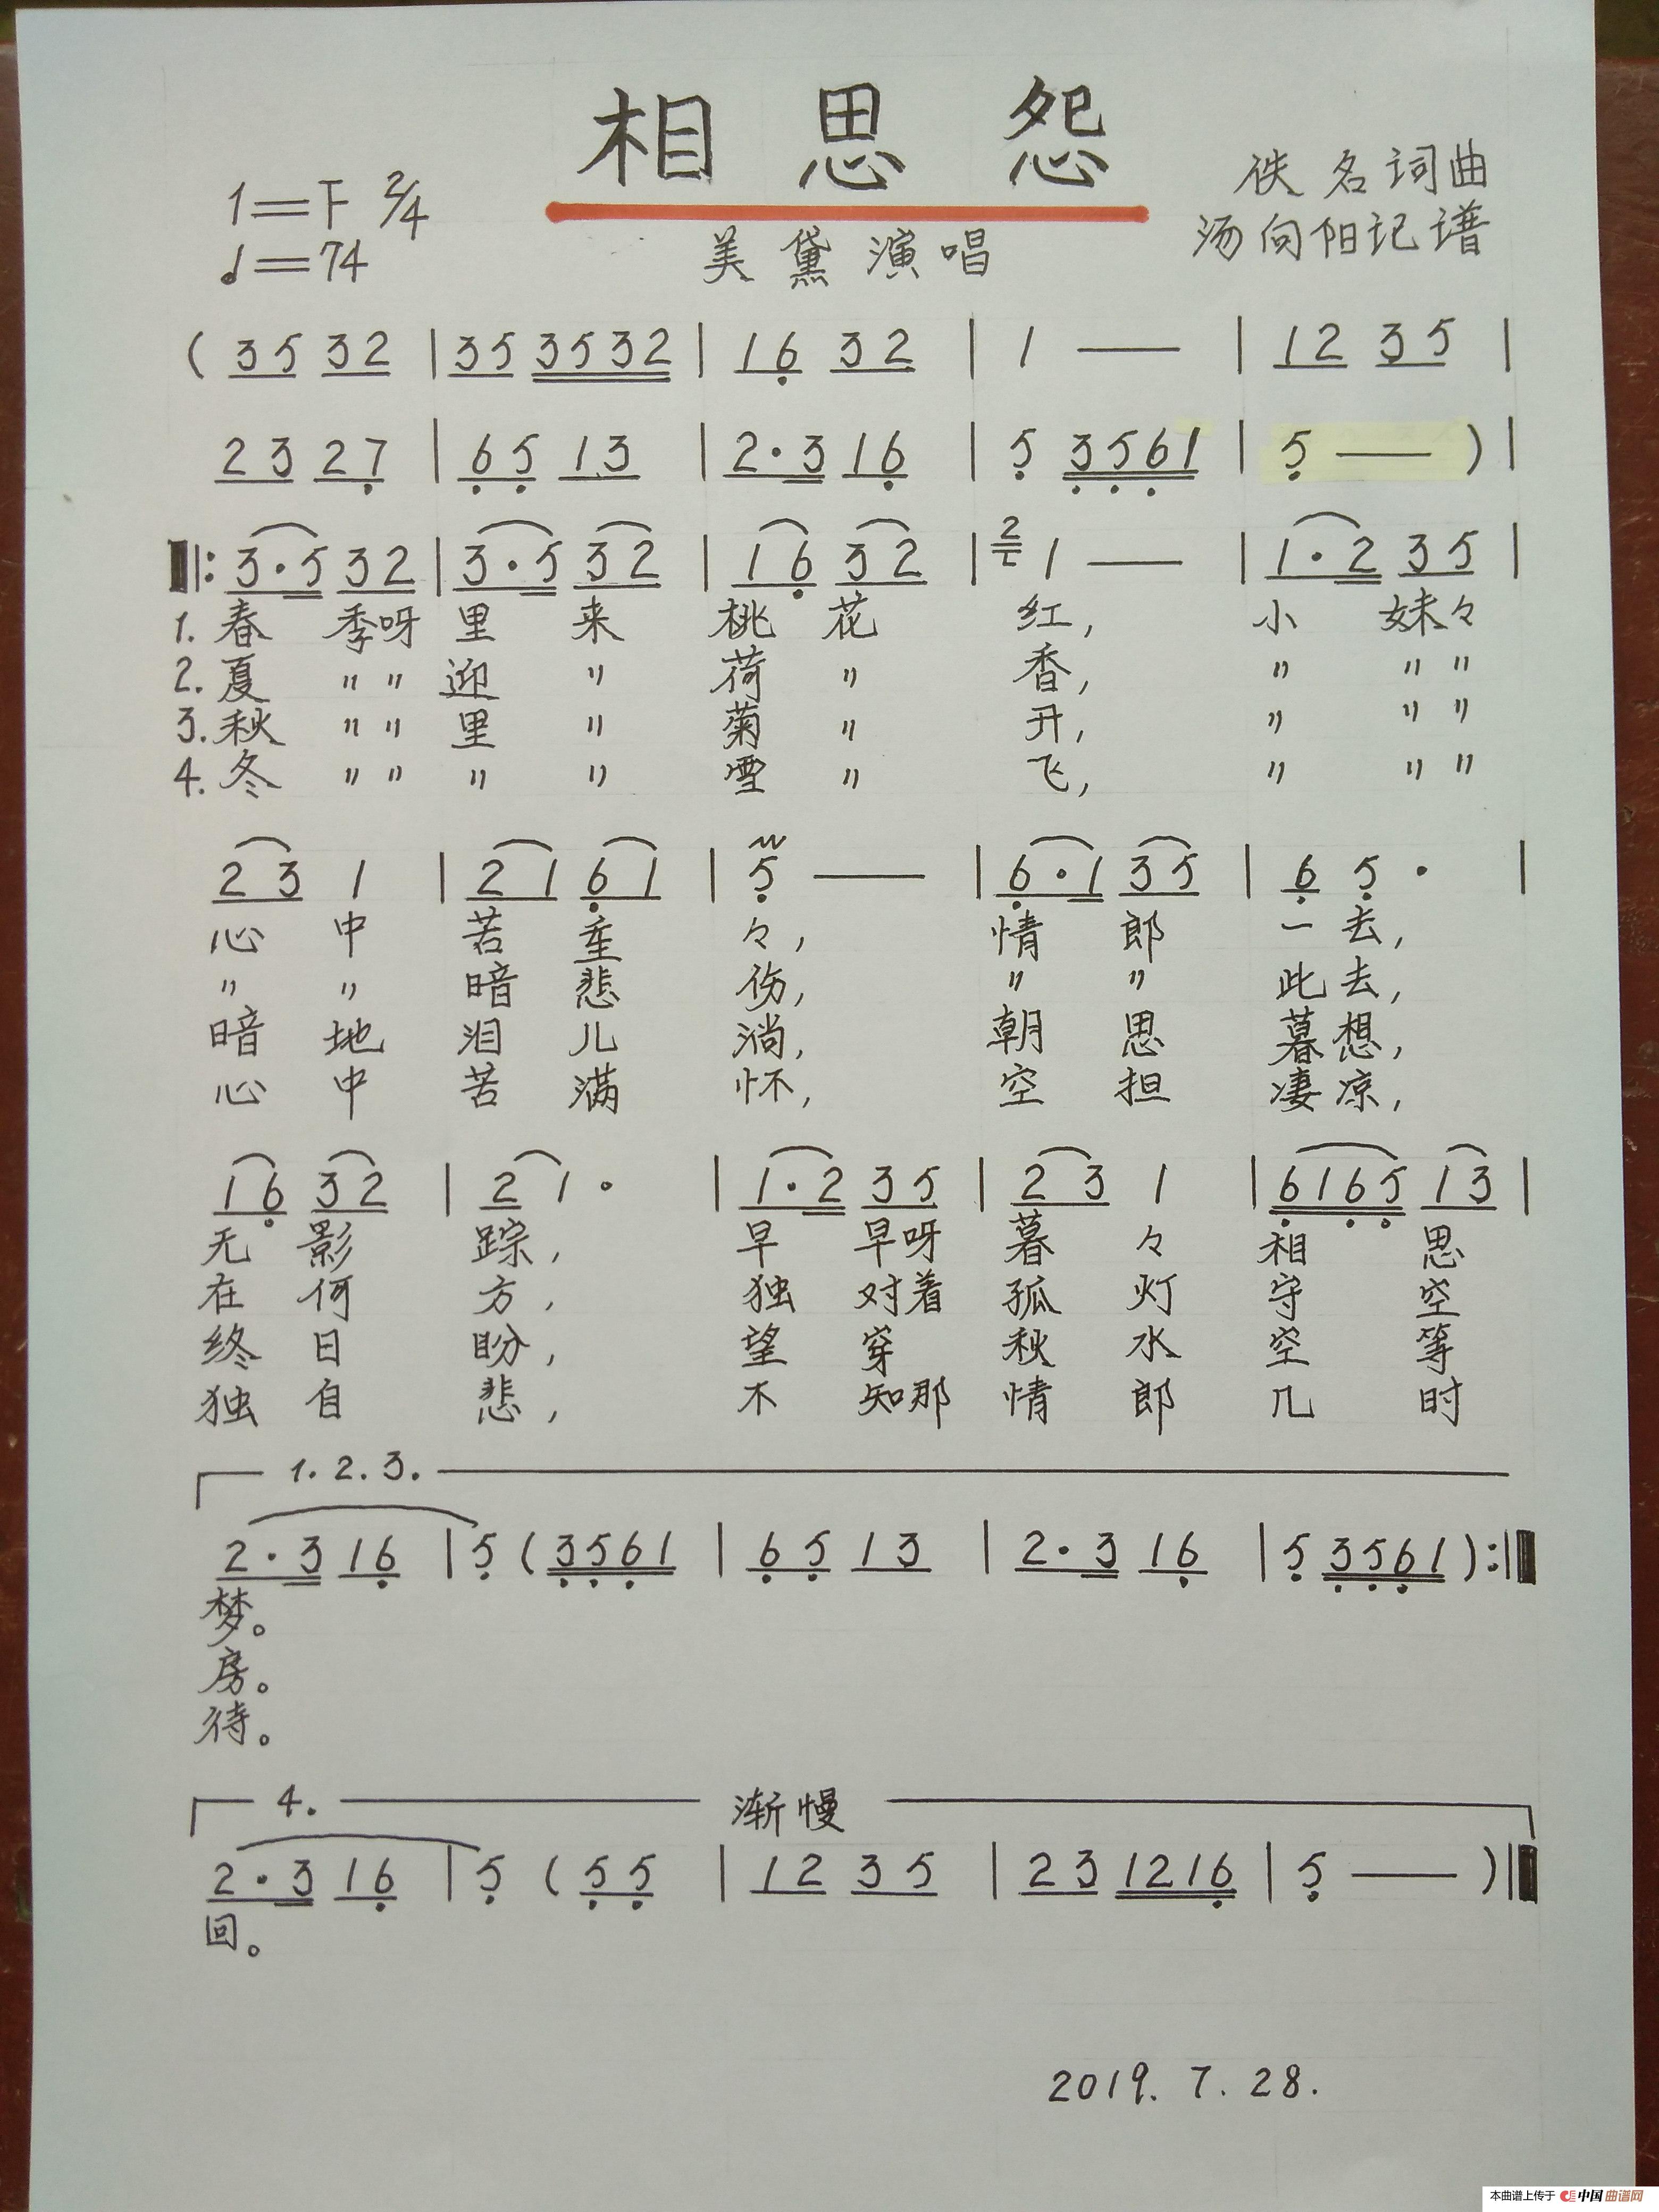 相思怨
1=F 2/4
佚名词曲
♩=74
美黛演唱
汤向阳记谱
( 35 32 | 35 3532 | 16 32 | 1 — | 12 35 |
23 27 | 65 13 | 2·3 16 | 5 3561 | 5 — ) |
‖: 3·5 32 | 3·5 32 | 16 32 | 2 1 — | 1·2 35 |
1. 春 季呀 里 来 桃 花 红, 小 妹々
2. 夏 〃 〃 迎 〃 荷 〃 香, 〃 〃 〃
3. 秋 〃 〃 里 〃 菊 〃 开, 〃 〃 〃
4. 冬 〃 〃 〃 〃 雪 〃 飞, 〃 〃 〃
23 1 | 21 61 | 5 — | 6·1 35 | 6 5· |
心 中 苦 重 々, 情 郎 一 去,
〃 〃 暗 悲 伤, 〃 〃 此 去,
暗 地 泪 儿 淌, 朝 思 暮 想,
心 中 苦 满 怀, 空 担 凄 凉,
16 32 | 2 1· | 1·2 35 | 23 1 | 6165 13 |
无 影 踪, 早 早呀 暮 々 相 思
在 何 方, 独 对着 孤 灯 守 空
终 日 盼, 望 穿 秋 水 空 等
独 自 悲, 不 知那 情 郎 几 时
1. 2. 3.
2·3 16 | 5 ( 3561 | 65 13 | 2·3 16 | 5 3561 ) :‖
梦。
房。
待。
4. 渐慢
2·3 16 | 5 ( 55 | 12 35 | 23 1216 | 5 — ) ‖
回。
2019. 7. 28.
本曲谱上传于 中国曲谱网